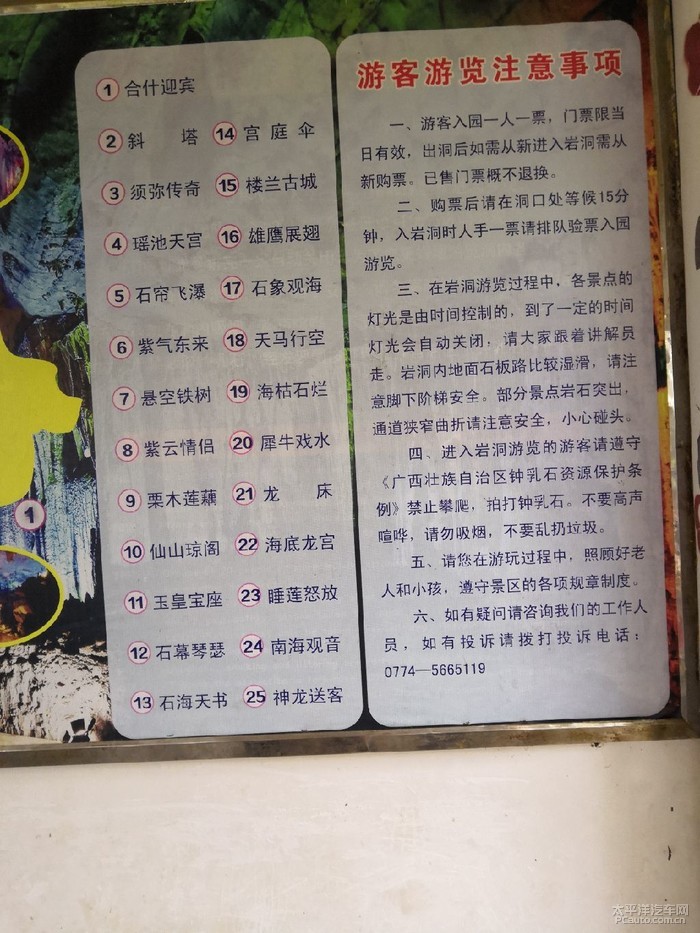 ① 合什迎宾
② 斜 塔
③ 须弥传奇
④ 瑶池天宫
⑤ 石帘飞瀑
⑥ 紫气东来
⑦ 悬空铁树
⑧ 紫云情侣
⑨ 栗木莲藕
⑩ 仙山琼阁
⑪ 玉皇宝座
⑫ 石幕琴瑟
⑬ 石海天书
⑭ 宫庭伞
⑮ 楼兰古城
⑯ 雄鹰展翅
⑰ 石象观海
⑱ 天马行空
⑲ 海枯石烂
⑳ 犀牛戏水
㉑ 龙 床
㉒ 海底龙宫
㉓ 睡莲怒放
㉔ 南海观音
㉕ 神龙送客
游客游览注意事项
一、游客入园一人一票，门票限当
日有效，出洞后如需从新进入岩洞需从
新购票。已售门票概不退换。
二、购票后请在洞口处等候15分
钟，入岩洞时人手一票请排队验票入园
游览。
三、在岩洞游览过程中，各景点的
灯光是由时间控制的，到了一定的时间
灯光会自动关闭，请大家跟着讲解员
走。岩洞内地面石板路比较湿滑，请注
意脚下阶梯安全。部分景点岩石突出，
通道狭窄曲折请注意安全，小心碰头。
四、进入岩洞游览的游客请遵守
《广西壮族自治区钟乳石资源保护条
例》禁止攀爬，拍打钟乳石。不要高声
喧哗，请勿吸烟，不要乱扔垃圾。
五、请您在游玩过程中，照顾好老
人和小孩，遵守景区的各项规章制度。
六、如有疑问请咨询我们的工作人
员，如有投诉请拨打投诉电话：
0774—5665119
1
太平洋汽车网
PCauto.com.cn